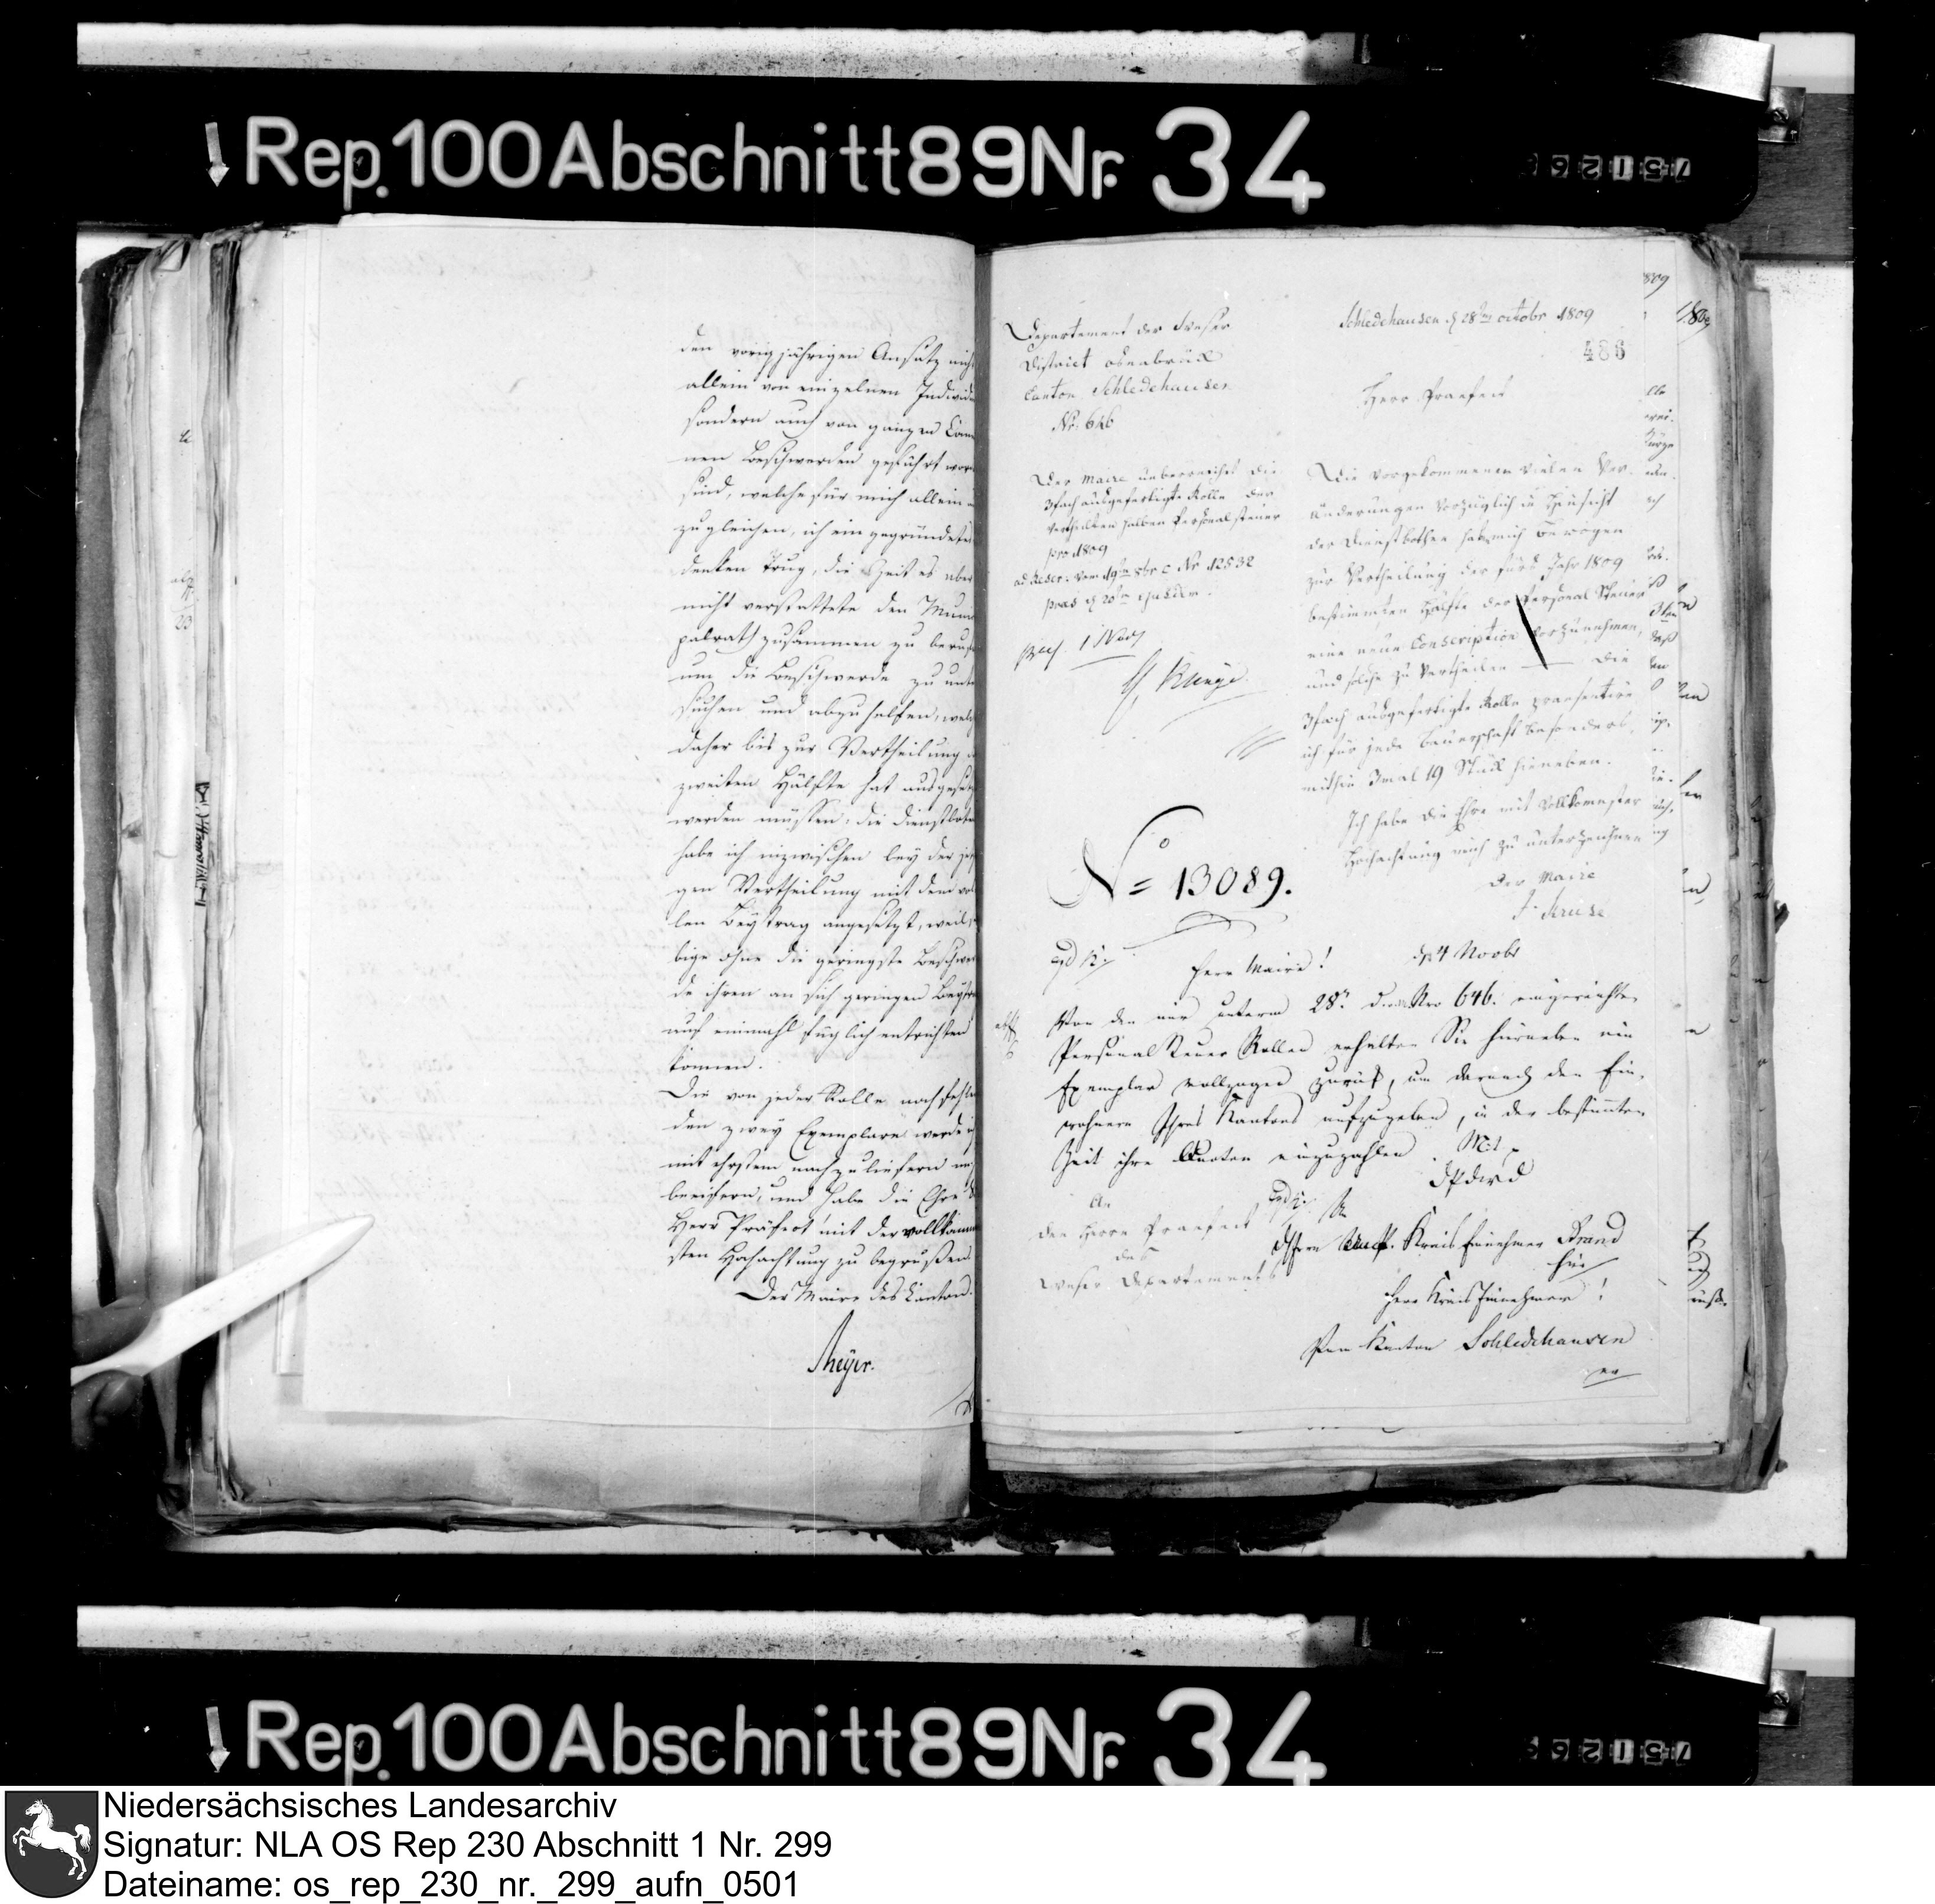 Rep. 100 Abschnitt 89 Nr. 34
den vorigjährigen Ansatz nicht
allein von einzelnen Individu
sondern auch von ganzen Com
nen Beschwerden geführt word
sind, welche für mich allein
zugleichen, ich ein gegründetes
denken trug, die Zeit es aber
nicht verstattete den Muni
palrath zusammen zu beruf
um die Beschwerde zu unte
suchen und abzuhelfen, welch
daher bis zur Vertheilung
zweiten Hälfte hat ausgesetz
werden müssen; die Dienstbote
habe ich inzwischen bey der jez
gen Vertheilung mit dem vol
len Beytrag angesetzt, weil
bige ohne die geringste Beschwer
de ihren an sich geringen Beytra
auf einmahl füglich entrichten
können.
Die von jeder Rolle noch fehle
den zwey Exemplare werde ich
mit ehstem nachzuliefern mich
beeifern, und habe die Ehre
Herr Präfect mit der vollkomm
sten Hochachtung zu begrüßen
Der Maire des Canton
Meyer.
Departement der Weser
District Osnabrück
Canton Schledehausen
Nr. 646
Der Maire ueberreichet die
3fach ausgefertigte Rolle der
vertheilten halben Personalsteuer
pro 1809
ad Rescr. vom 19ten 8br c. Nr 12532
praes d 20ten ejusdem.
1 Nov
Schledehausen d 28ten octobr 1809
486
Herr Praefect
Die vorgekommenen vielen Ver-
änderungen vorzüglich in Hinsicht
der Dienstbothen hab mich bewogen
zur Vertheilung der fürs Jahr 1809
bestimmten Hälfte der Personal Steuer
eine neue Conscription vorzunehmen,
und solche zu vertheilen — Die
3fach ausgefertigte Rolle praesentire
ich für jede Bauerschaft besonders,
mithin 3mal 19 Stück hieneben.
Ich habe die Ehre mit vollkomenster
Hochachtung mich zu unterzeichnen
Der Maire
Kruse
No = 13089.
Herr Maire!
d 4 Novbr
Von den mir unterm 28n d. Nro 646. eingereichten
Personal Steuer Rollen erhalten Sie hierneben ein
Exemplar vollzogen zurück, um darnach den Ein-
wohnern Ihres Kantons aufzugeben, in der bestimmten
Zeit ihre Quoten einzuzahlen. Mit p
An
den Herrn Praefect
des
Weser Departements
An
Herrn Kreis Einnehmer Brand
hier
Herr Kreis Einnehmer!
Vom Kanton Schledehausen
Rep. 100 Abschnitt 89 Nr. 34
Niedersächsisches Landesarchiv
Signatur: NLA OS Rep 230 Abschnitt 1 Nr. 299
Dateiname: os_rep_230_nr._299_aufn_0501